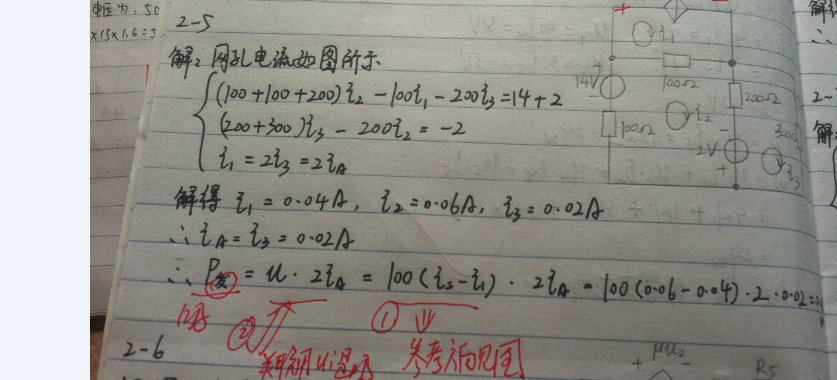 电压为: 50
×15×1.6=3
2-5
解: 网孔电流如图所示
(100+100+200)i₂ - 100i₁ - 200i₃ = 14+2
(200+300)i₃ - 200i₂ = -2
i₁ = 2i₃ = 2i_A
解得 i₁ = 0.04A, i₂ = 0.06A, i₃ = 0.02A
∴ i_A = i₃ = 0.02A
∴ P发 = u · 2i_A = 100(i₂-i₁) · 2i_A = 100(0.06-0.04)·2·0.02=
① ⇓
参考方向见图
②
2-6
+ − i₁
14V + −
100Ω
200Ω
100Ω
i₂
2V − +
i₃
+ μu₂
R5
解
∴
2-
解